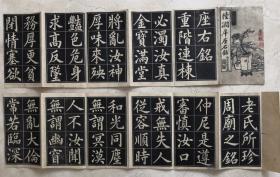 座右銘
重階連棟
必濁汝真
金寶滿堂
將亂汝神
厚味來殃
豔色危身
求高反墜
務厚更貧
閉情塞欲
老氏所珍
周廟之銘
仲尼是遵
審慎汝口
戒無失人
從容順時
和光同塵
無謂冥漠
人不汝聞
無謂幽窅
無亂大倫
常若臨深